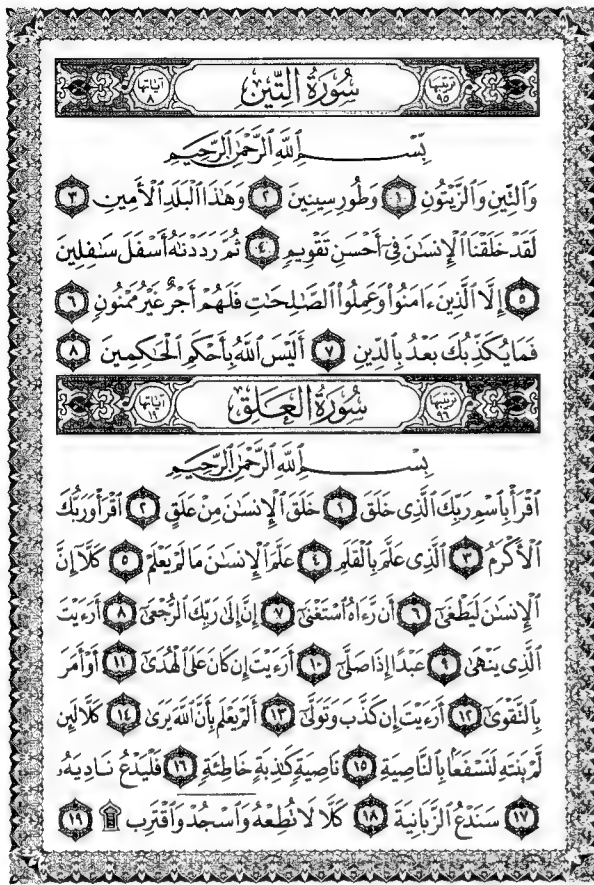 ترتيبها ٩٥ سُورَةُ التِّين آياتها ٨
بِسْمِ ٱللَّهِ ٱلرَّحْمَٰنِ ٱلرَّحِيمِ
وَٱلتِّينِ وَٱلزَّيْتُونِ ١ وَطُورِ سِينِينَ ٢ وَهَٰذَا ٱلْبَلَدِ ٱلْأَمِينِ ٣
لَقَدْ خَلَقْنَا ٱلْإِنسَٰنَ فِىٓ أَحْسَنِ تَقْوِيمٍ ٤ ثُمَّ رَدَدْنَٰهُ أَسْفَلَ سَٰفِلِينَ
٥ إِلَّا ٱلَّذِينَ ءَامَنُوا۟ وَعَمِلُوا۟ ٱلصَّٰلِحَٰتِ فَلَهُمْ أَجْرٌ غَيْرُ مَمْنُونٍ ٦
فَمَا يُكَذِّبُكَ بَعْدُ بِٱلدِّينِ ٧ أَلَيْسَ ٱللَّهُ بِأَحْكَمِ ٱلْحَٰكِمِينَ ٨
ترتيبها ٩٦ سُورَةُ العَلَق آياتها ١٩
بِسْمِ ٱللَّهِ ٱلرَّحْمَٰنِ ٱلرَّحِيمِ
ٱقْرَأْ بِٱسْمِ رَبِّكَ ٱلَّذِى خَلَقَ ١ خَلَقَ ٱلْإِنسَٰنَ مِنْ عَلَقٍ ٢ ٱقْرَأْ وَرَبُّكَ
ٱلْأَكْرَمُ ٣ ٱلَّذِى عَلَّمَ بِٱلْقَلَمِ ٤ عَلَّمَ ٱلْإِنسَٰنَ مَا لَمْ يَعْلَمْ ٥ كَلَّآ إِنَّ
ٱلْإِنسَٰنَ لَيَطْغَىٰٓ ٦ أَن رَّءَاهُ ٱسْتَغْنَىٰٓ ٧ إِنَّ إِلَىٰ رَبِّكَ ٱلرُّجْعَىٰٓ ٨ أَرَءَيْتَ
ٱلَّذِى يَنْهَىٰ ٩ عَبْدًا إِذَا صَلَّىٰٓ ١٠ أَرَءَيْتَ إِن كَانَ عَلَى ٱلْهُدَىٰٓ ١١ أَوْ أَمَرَ
بِٱلتَّقْوَىٰٓ ١٢ أَرَءَيْتَ إِن كَذَّبَ وَتَوَلَّىٰٓ ١٣ أَلَمْ يَعْلَم بِأَنَّ ٱللَّهَ يَرَىٰ ١٤ كَلَّا لَئِن
لَّمْ يَنتَهِ لَنَسْفَعًۢا بِٱلنَّاصِيَةِ ١٥ نَاصِيَةٍ كَٰذِبَةٍ خَاطِئَةٍ ١٦ فَلْيَدْعُ نَادِيَهُۥ
١٧ سَنَدْعُ ٱلزَّبَانِيَةَ ١٨ كَلَّا لَا تُطِعْهُ وَٱسْجُدْ وَٱقْتَرِب ۩ ١٩